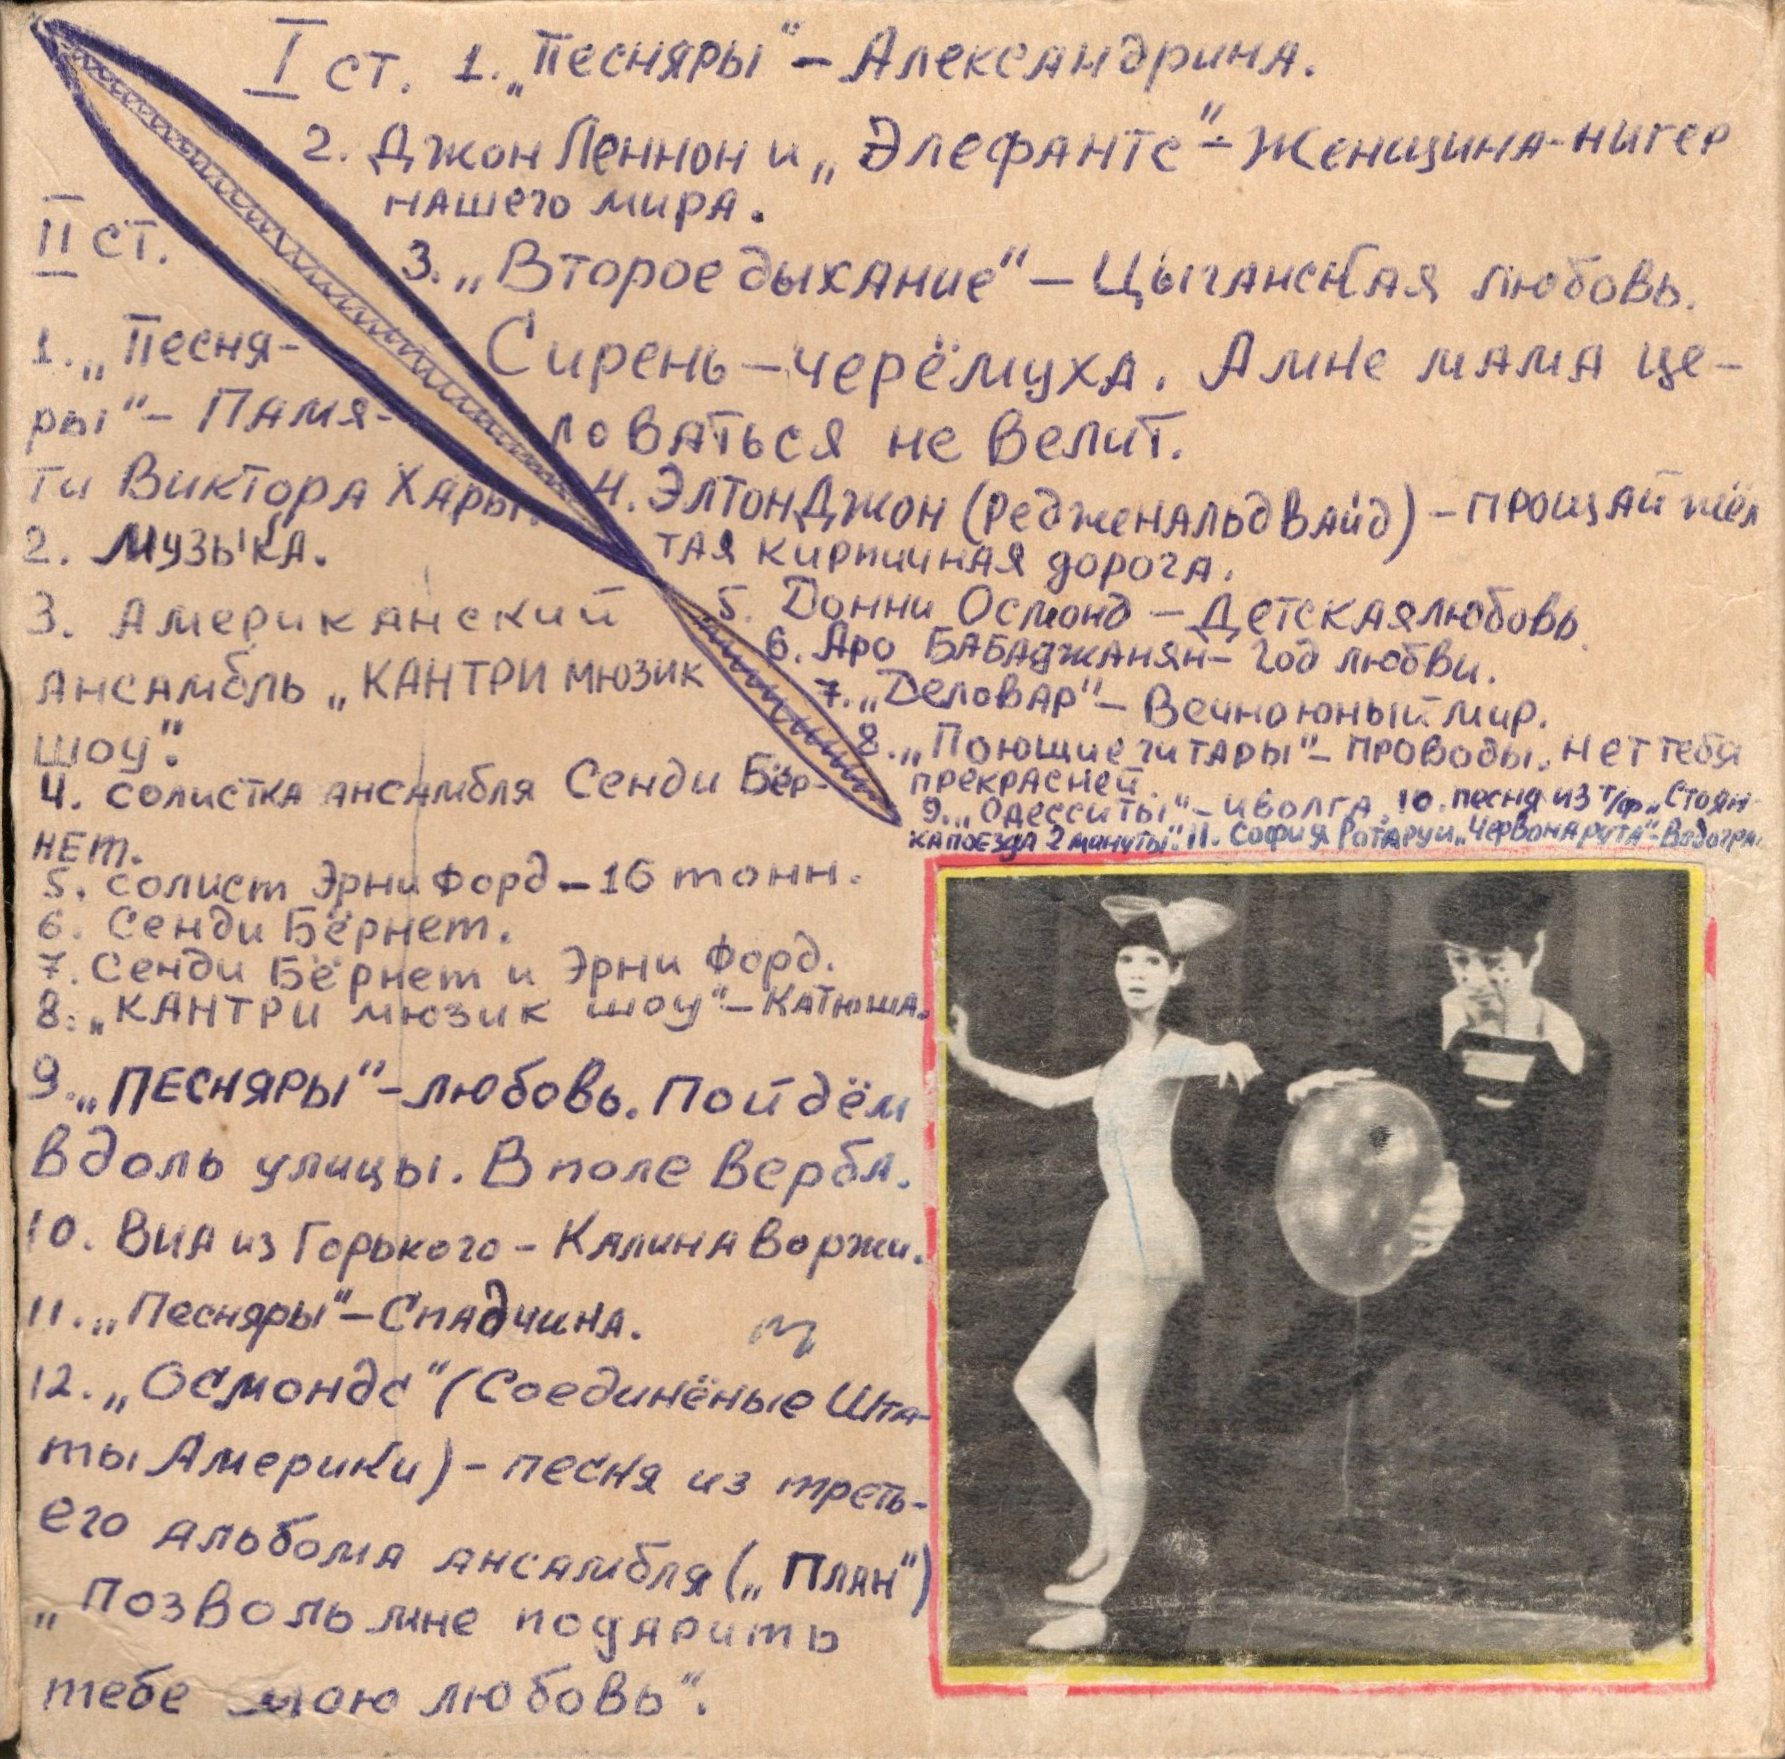 I ст. 1. „Песняры“ – Александрина.
2. Джон Леннон и „Элефантс“ – Женщина-нигер
нашего мира.
3. „Второе дыхание“ – Цыганская любовь.
Сирень – черёмуха. А мне мама це-
ловаться не велит.
4. Элтон Джон (Редженальд Вайд) – прощай жёл
тая кирпичная дорога.
5. Донни Осмонд – Детская любовь.
6. Аро Бабаджанян – Год любви.
7. „Деловар“ – Вечно юный мир.
8. „Поющие гитары“ – проводы. Нет тебя
прекрасней.
9. „Одесситы“ – Иволга. 10. песня из т/ф „Стоян-
ка поезда 2 минуты“. 11. София Ротару и „Червона рута“ – Водогра
II ст.
1. „Песня-
ры“ – Памя-
ти Виктора Хары.
2. Музыка.
3. Американский
ансамбль „КАНТРИ МЮЗИК
шоу“.
4. солистка ансамбля Сенди Бёр-
нет.
5. солист Эрни Форд – 16 тонн.
6. Сенди Бёрнет.
7. Сенди Бёрнет и Эрни Форд.
8. „КАНТРИ мюзик шоу“ – Катюша.
9. „ПЕСНЯРЫ“ – любовь. Пойдём
вдоль улицы. В поле верба.
10. Виа из Горького – Калина воржи.
11. „Песняры“ – Спадчина.
т
12. „Осмондс“ (Соединёные Шта-
ты Америки) – песня из треть-
его альбома ансамбля („План“)
„Позволь мне подарить
тебе мою любовь“.